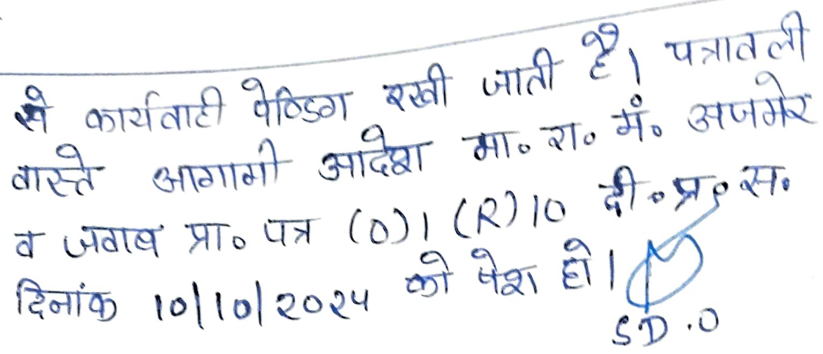 से कार्यवाही पेण्डिग रखी जाती है। पत्रावली
वास्ते आगामी आदेश मा० रा० मं० अजमेर
व जवाब प्रा० पत्र (O)1 (R)10 दी० प्र० स०
दिनांक 10/10/2024 को पेश हो।
S.D.O